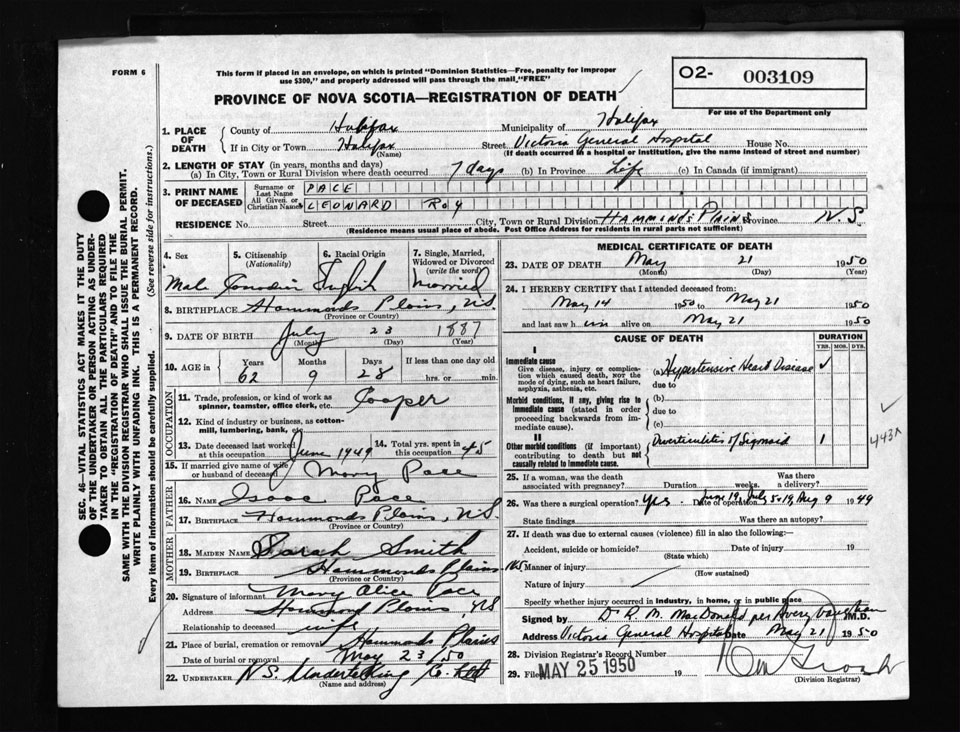 FORM 6
This form if placed in an envelope, on which is printed "Dominion Statistics—Free, penalty for improper
use $300," and properly addressed will pass through the mail, "FREE"
O2- 003109
For use of the Department only
PROVINCE OF NOVA SCOTIA—REGISTRATION OF DEATH
SEC. 46—VITAL STATISTICS ACT MAKES IT THE DUTY
OF THE UNDERTAKER OR PERSON ACTING AS UNDER-
TAKER TO OBTAIN ALL THE PARTICULARS REQUIRED
IN THE "REGISTRATION OF DEATH" AND TO FILE THE
SAME WITH THE DIVISION REGISTRAR WHO SHALL ISSUE THE BURIAL PERMIT.
WRITE PLAINLY WITH UNFADING INK. THIS IS A PERMANENT RECORD.
Every item of information should be carefully supplied. (See reverse side for instructions.)
1. PLACE OF DEATH
County of Halifax Municipality of Halifax
If in City or Town Halifax (Name) Street Victoria General Hospital House No.
(If death occurred in a hospital or institution, give the name instead of street and number)
2. LENGTH OF STAY (in years, months and days)
(a) In City, Town or Rural Division where death occurred 7 days (b) In Province Life (c) In Canada (if immigrant)
3. PRINT NAME OF DECEASED
Surname or Last Name PACE
All Given or Christian Names LEONARD ROY
RESIDENCE No. Street City, Town or Rural Division HAMMONDS PLAINS Province N.S
(Residence means usual place of abode. Post Office Address for residents in rural parts not sufficient)
4. Sex 5. Citizenship (Nationality) 6. Racial Origin 7. Single, Married, Widowed or Divorced (write the word)
Male Canadian English Married
8. BIRTHPLACE Hammonds Plains, N.S.
(Province or Country)
9. DATE OF BIRTH July 23 1887
(Month) (Day) (Year)
10. AGE in Years Months Days If less than one day old
62 9 28 hrs. or min.
OCCUPATION
11. Trade, profession, or kind of work as spinner, teamster, office clerk, etc. Cooper
12. Kind of industry or business, as cotton-mill, lumbering, bank, etc.
13. Date deceased last worked at this occupation June 1949 14. Total yrs. spent in this occupation 45
15. If married give name of wife or husband of deceased Mary Pace
FATHER
16. NAME Isaac Pace
17. BIRTHPLACE Hammonds Plains, N.S
(Province or Country)
MOTHER
18. MAIDEN NAME Sarah Smith
19. BIRTHPLACE Hammonds Plains NS
(Province or Country)
20. Signature of informant Mary Alice Pace
Address Hammond Plains NS
Relationship to deceased wife
21. Place of burial, cremation or removal Hammonds Plains
Date of burial or removal May 23/50
22. UNDERTAKER N.S. Undertaking Co. Ltd
(Name and address)
MEDICAL CERTIFICATE OF DEATH
23. DATE OF DEATH May 21 1950
(Month) (Day) (Year)
24. I HEREBY CERTIFY that I attended deceased from:
May 14 1950 to May 21 1950
and last saw him alive on May 21 1950
CAUSE OF DEATH DURATION
YRS. MOS. DYS.
I
Immediate cause
Give disease, injury or complication which caused death, not the mode of dying, such as heart failure, asphyxia, asthenia, etc.
(a) Hypertensive Heart Disease ✓
due to
Morbid conditions, if any, giving rise to immediate cause (stated in order proceeding backwards from immediate cause).
(b)
due to
(c)
II
Other morbid conditions (if important) contributing to death but not causally related to immediate cause.
Diverticulitis of Sigmoid 1
443
25. If a woman, was the death associated with pregnancy? Duration weeks. Was there a delivery?
26. Was there a surgical operation? Yes. Date of operation June 19, July 5+19, Aug 9 1949
State findings Was there an autopsy?
27. If death was due to external causes (violence) fill in also the following:
Accident, suicide or homicide? Date of injury 19
(State which)
Manner of injury
(How sustained)
Nature of injury
Specify whether injury occurred in industry, in home, or in public place
Signed by Dr MacDonald per Avery Vaughan M.D.
Address Victoria General Hospital Date May 21 1950
28. Division Registrar's Record Number
29. Filed MAY 25 1950 19
(Division Registrar)